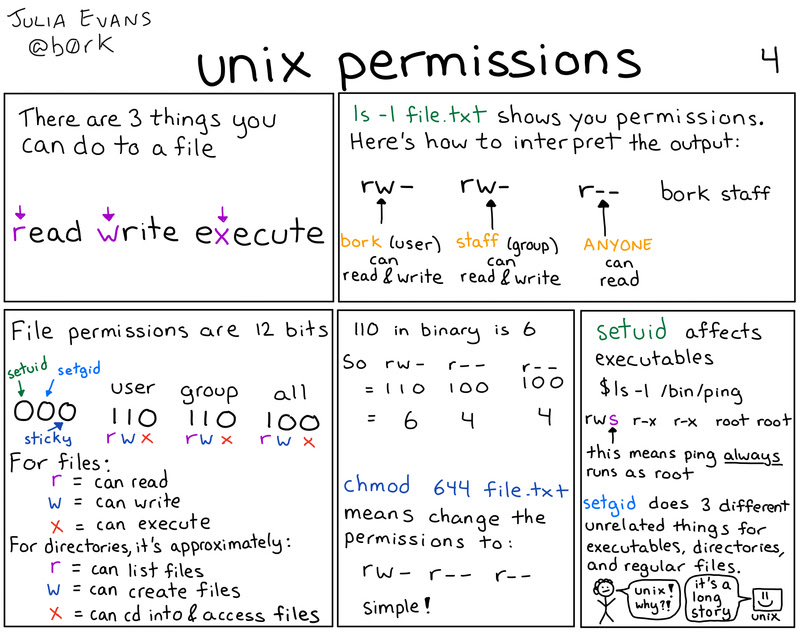 JULIA EVANS
@b0rk
unix permissions
4
There are 3 things you
can do to a file
read write execute
ls -l file.txt shows you permissions.
Here's how to interpret the output:
rw- rw- r-- bork staff
bork (user) staff (group) ANYONE
can can can
read & write read & write read
File permissions are 12 bits
setuid setgid
user group all
000 110 110 100
sticky rwx rwx rwx
For files:
r = can read
w = can write
x = can execute
For directories, it's approximately:
r = can list files
w = can create files
x = can cd into & access files
110 in binary is 6
So rw- r-- r--
= 110 100 100
= 6 4 4
chmod 644 file.txt
means change the
permissions to:
rw- r-- r--
simple!
setuid affects
executables
$ls -l /bin/ping
rws r-x r-x root root
this means ping always
runs as root
setgid does 3 different
unrelated things for
executables, directories,
and regular files.
unix!
why?!
it's a
long
story
unix